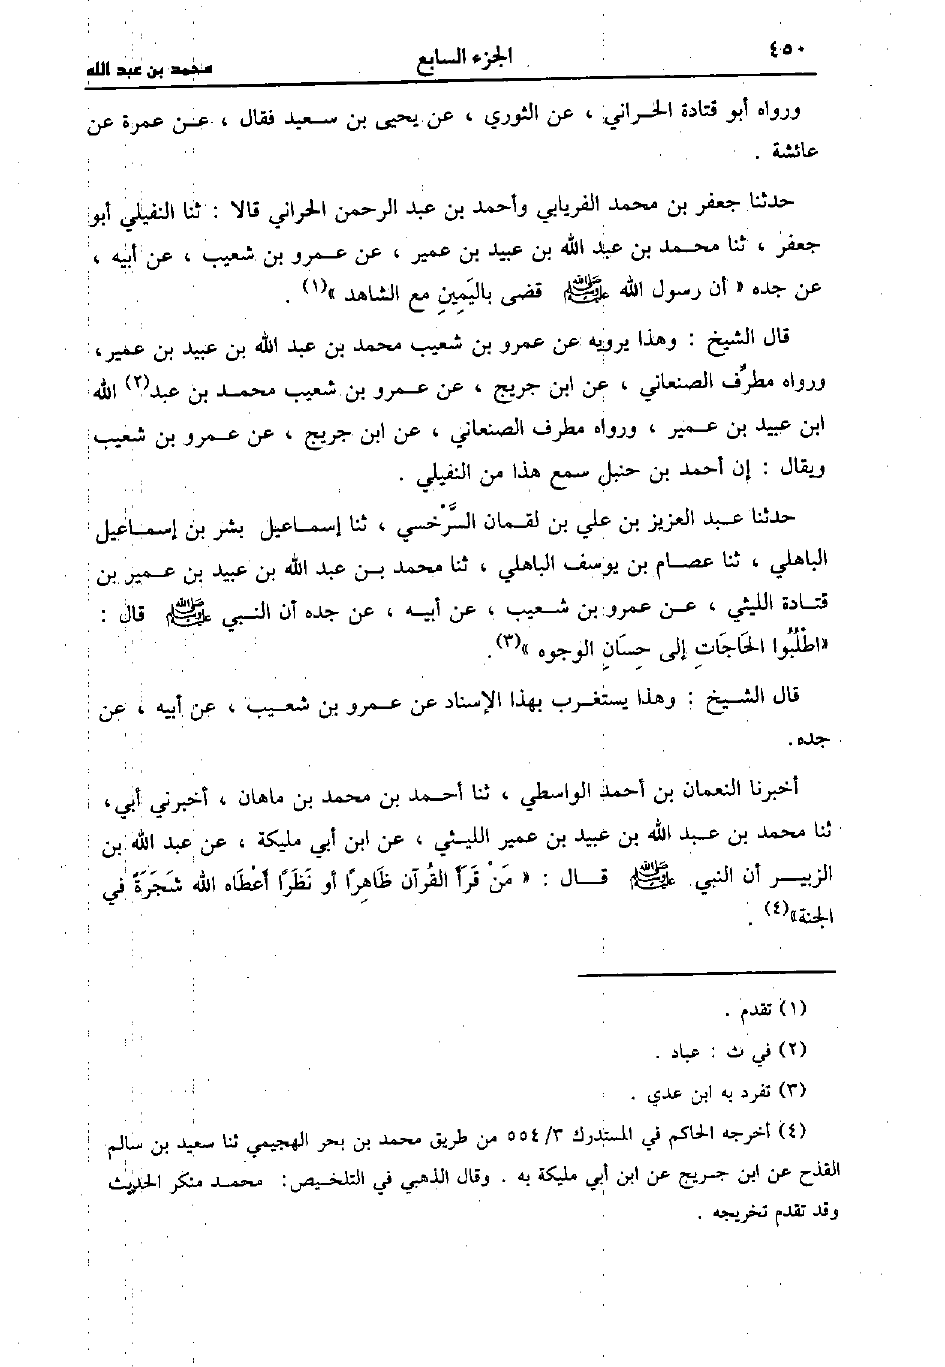 ٤٥٠
الجزء السابع
محمد بن عبد الله
ورواه أبو قتادة الحراني ، عن الثوري ، عن يحيى بن سعيد فقال ، عن عمرة عن
عائشة .
حدثنا جعفر بن محمد الفريابي وأحمد بن عبد الرحمن الحراني قالا : ثنا النفيلي أبو
جعفر ، ثنا محمد بن عبد الله بن عبيد بن عمير ، عن عمرو بن شعيب ، عن أبيه ،
عن جده « أن رسول الله ﷺ قضى باليَمِينِ مع الشاهد »(١) .
قال الشيخ : وهذا يرويه عن عمرو بن شعيب محمد بن عبد الله بن عبيد بن عمير،
ورواه مطرِّف الصنعاني ، عن ابن جريج ، عن عمرو بن شعيب محمد بن عبد(٢) الله
ابن عبيد بن عمير ، ورواه مطرف الصنعاني ، عن ابن جريج ، عن عمرو بن شعيب
ويقال : إن أحمد بن حنبل سمع هذا من النفيلي .
حدثنا عبد العزيز بن علي بن لقمان السَّرْخسي ، ثنا إسماعيل بشر بن إسماعيل
الباهلي ، ثنا عصام بن يوسف الباهلي ، ثنا محمد بن عبد الله بن عبيد بن عمير بن
قتادة الليثي ، عن عمرو بن شعيب ، عن أبيه ، عن جده أن النبي ﷺ قال :
«اطْلُبُوا الحَاجَاتِ إلى حِسَانِ الوجوه »(٣).
قال الشيخ : وهذا يستغرب بهذا الإسناد عن عمرو بن شعيب ، عن أبيه ، عن
جده.
أخبرنا النعمان بن أحمد الواسطي ، ثنا أحمد بن محمد بن ماهان ، أخبرني أبي،
ثنا محمد بن عبد الله بن عبيد بن عمير الليثي ، عن ابن أبي مليكة ، عن عبد الله بن
الزبير أن النبي ﷺ قال : « مَنْ قَرَأَ القُرآن ظَاهِرًا أو نَظَرًا أعْطَاه الله شَجَرَةً في
الجنة»(٤) .
(١) تقدم .
(٢) في ث : عباد .
(٣) تفرد به ابن عدي .
(٤) أخرجه الحاكم في المستدرك ٥٥٤/٣ من طريق محمد بن بحر الهجيمي ثنا سعيد بن سالم
القداح عن ابن جريج عن ابن أبي مليكة به . وقال الذهبي في التلخيص: محمد منكر الحديث
وقد تقدم تخريجه .